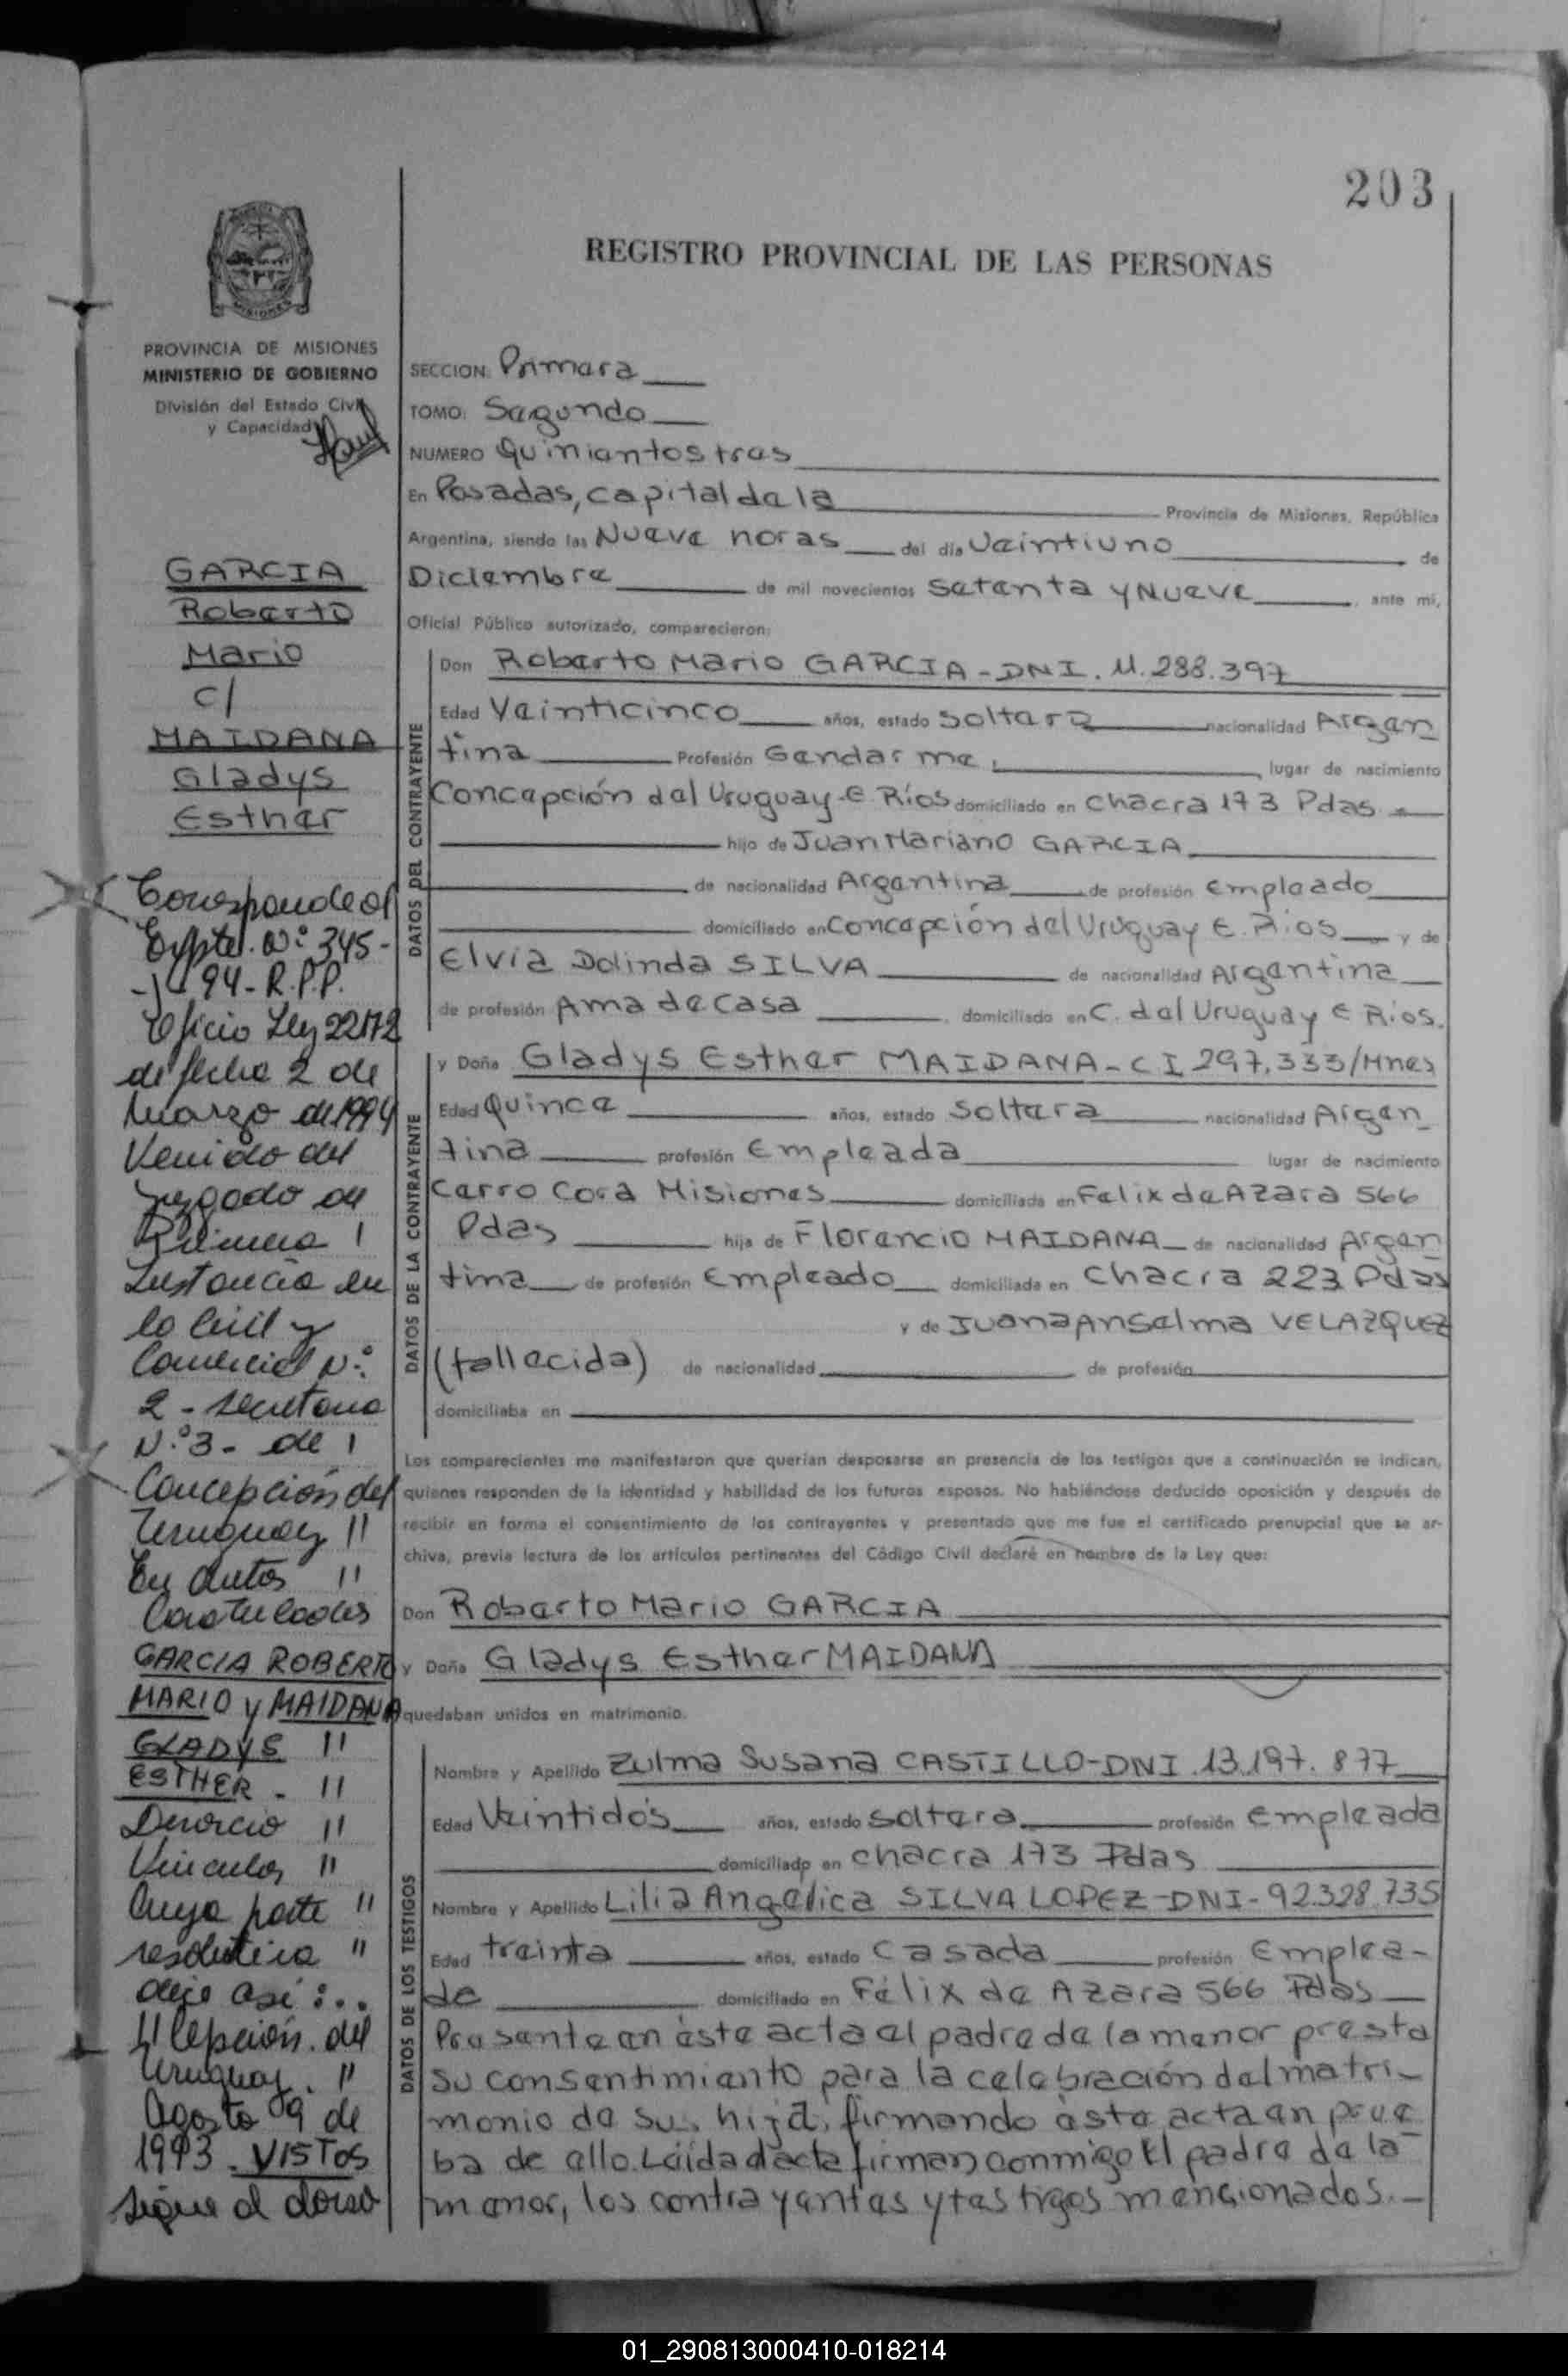 203
REGISTRO PROVINCIAL DE LAS PERSONAS
MISIONES
PROVINCIA DE MISIONES
MINISTERIO DE GOBIERNO
División del Estado Civil
y Capacidad
GARCIA
Roberto
Mario
c/
MAIDANA
Gladys
Esther
Corresponde al
Expte. Nº 345-
94- R.P.P.
Oficio Ley 22172
de fecha 2 de
Marzo de 1994
Venido del
Juzgado de
Primera
Instancia en
lo Civil y
Comercial Nº
2 - Secretaria
N.º 3 - de
Concepción del
Uruguay "
En autos "
Caratulados
GARCIA ROBERTO
MARIO y MAIDANA
GLADYS "
ESTHER - "
Divorcio "
Vincular "
Cuya parte "
resolutiva "
dice así:..
Uruguay. "
Agosto 09 de
1993. VISTOS
sigue al dorso
SECCION: Primera
TOMO: Segundo
NUMERO Quinientos tres
En Posadas, capital de la Provincia de Misiones, República
Argentina, siendo las Nueve horas del día Veintiuno de
Diciembre de mil novecientos setenta y Nueve, ante mí,
Oficial Público autorizado, comparecieron:
DATOS DEL CONTRAYENTE
Don Roberto Mario GARCIA - DNI. 11.288.397
Edad Veinticinco años, estado soltero nacionalidad Argen
tina Profesión Gendarme, lugar de nacimiento
Concepción del Uruguay-E. Ríos domiciliado en Chacra 173 Pdas.
hijo de Juan Mariano GARCIA
de nacionalidad Argentina de profesión Empleado
domiciliado en Concepción del Uruguay E. Rios y de
Elvia Dolinda SILVA de nacionalidad Argentina
de profesión Ama de Casa domiciliado en C. del Uruguay E Rios.
DATOS DE LA CONTRAYENTE
y Doña Gladys Esther MAIDANA - C I 297.333/Mnes
Edad Quince años, estado Soltera nacionalidad Argen
tina profesión Empleada lugar de nacimiento
Cerro Cora Misiones domiciliada en Felix de Azara 566
Pdas hija de Florencio MAIDANA de nacionalidad Argen
tina de profesión Empleado domiciliado en Chacra 223 Pdas
y de Juana Anselma VELAZQUEZ
(fallecida) de nacionalidad de profesión
domiciliaba en
Los comparecientes me manifestaron que querían desposarse en presencia de los testigos que a continuación se indican,
quienes responden de la identidad y habilidad de los futuros esposos. No habiéndose deducido oposición y después de
recibir en forma el consentimiento de los contrayentes y presentado que me fue el certificado prenupcial que se ar-
chiva, previa lectura de los artículos pertinentes del Código Civil declaré en nombre de la Ley que:
Don Roberto Mario GARCIA
y Doña Gladys Esther MAIDANA
quedaban unidos en matrimonio.
DATOS DE LOS TESTIGOS
Nombre y Apellido Zulma Susana CASTILLO - DNI. 13.197.877
Edad Veintidós años, estado soltera profesión Empleada
domiciliado en chacra 173 Pdas
Nombre y Apellido Lilia Angélica SILVA LOPEZ - DNI - 92.328.735
Edad treinta años, estado Casada profesión Emplea-
da domiciliado en Félix de Azara 566 Pdas
Presente en éste acta el padre de la menor presta
su consentimiento para la celebración del matri-
monio de su hija, firmando ésta acta en prue
ba de ello. Leída el acta firman conmigo El padre de la
menor, los contrayentes y testigos mencionados.-
01_290813000410-018214